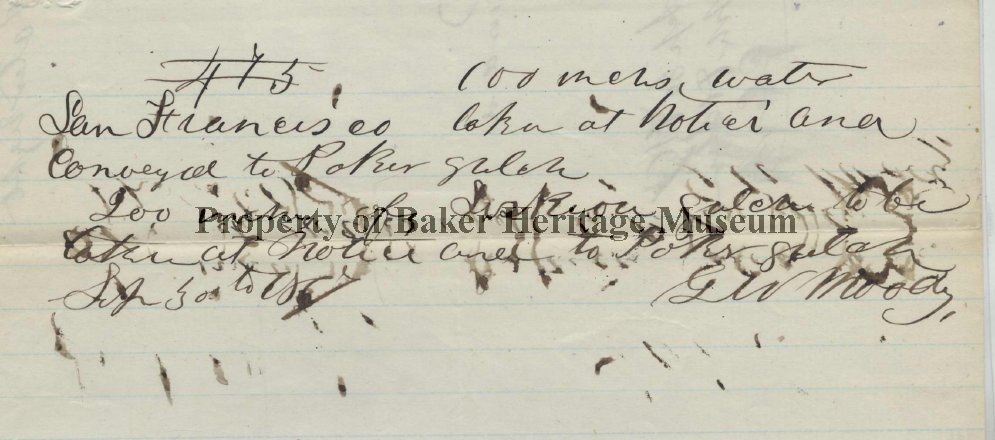 475 100 inches water
San Francisco taken at Notice and
Conveyed to Poker gulch
200 inches gulch to be
taken at Notice and to Poker gulch
Sep 30 to
G W Moody
Property of Baker Heritage Museum